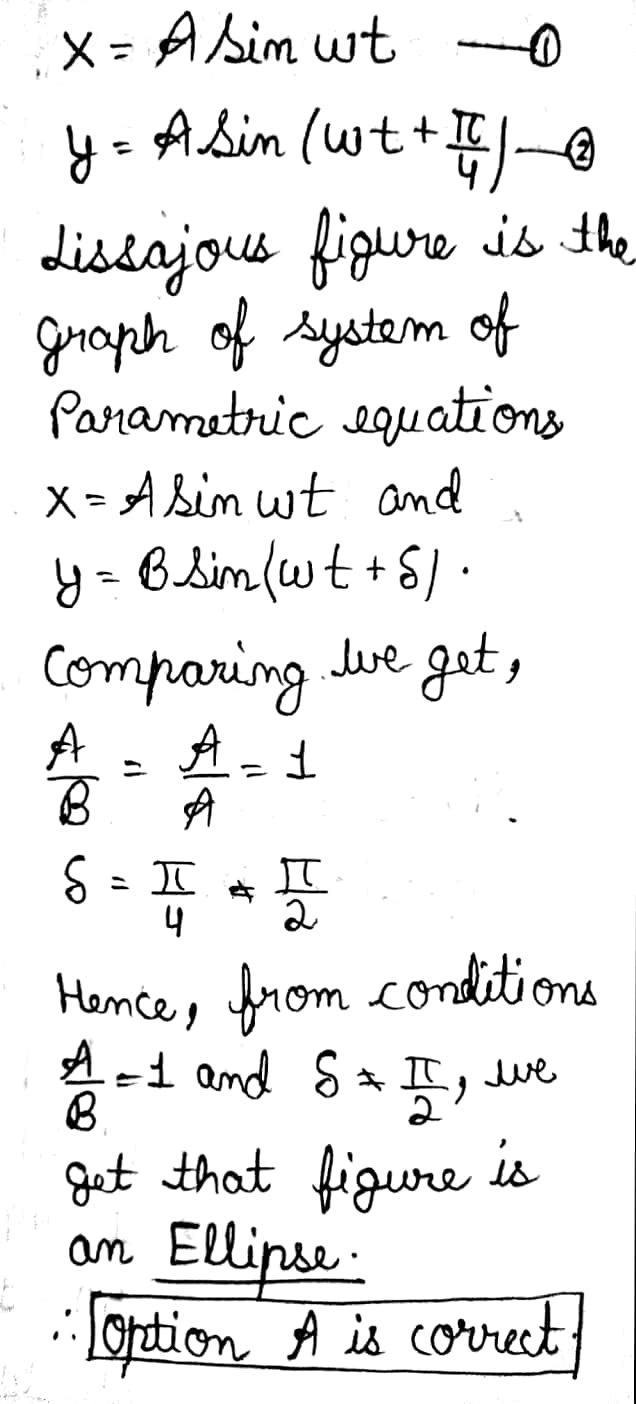 x = A sin wt —①
y = A sin (wt + π/4) —②
Lissajous figure is the
graph of system of
Parametric equations
x = A sin wt and
y = B sin(wt + δ).
Comparing we get,
A/B = A/A = 1
δ = π/4 ≠ π/2
Hence, from conditions
A/B = 1 and δ ≠ π/2, we
get that figure is
an Ellipse.
∴ Option A is correct.